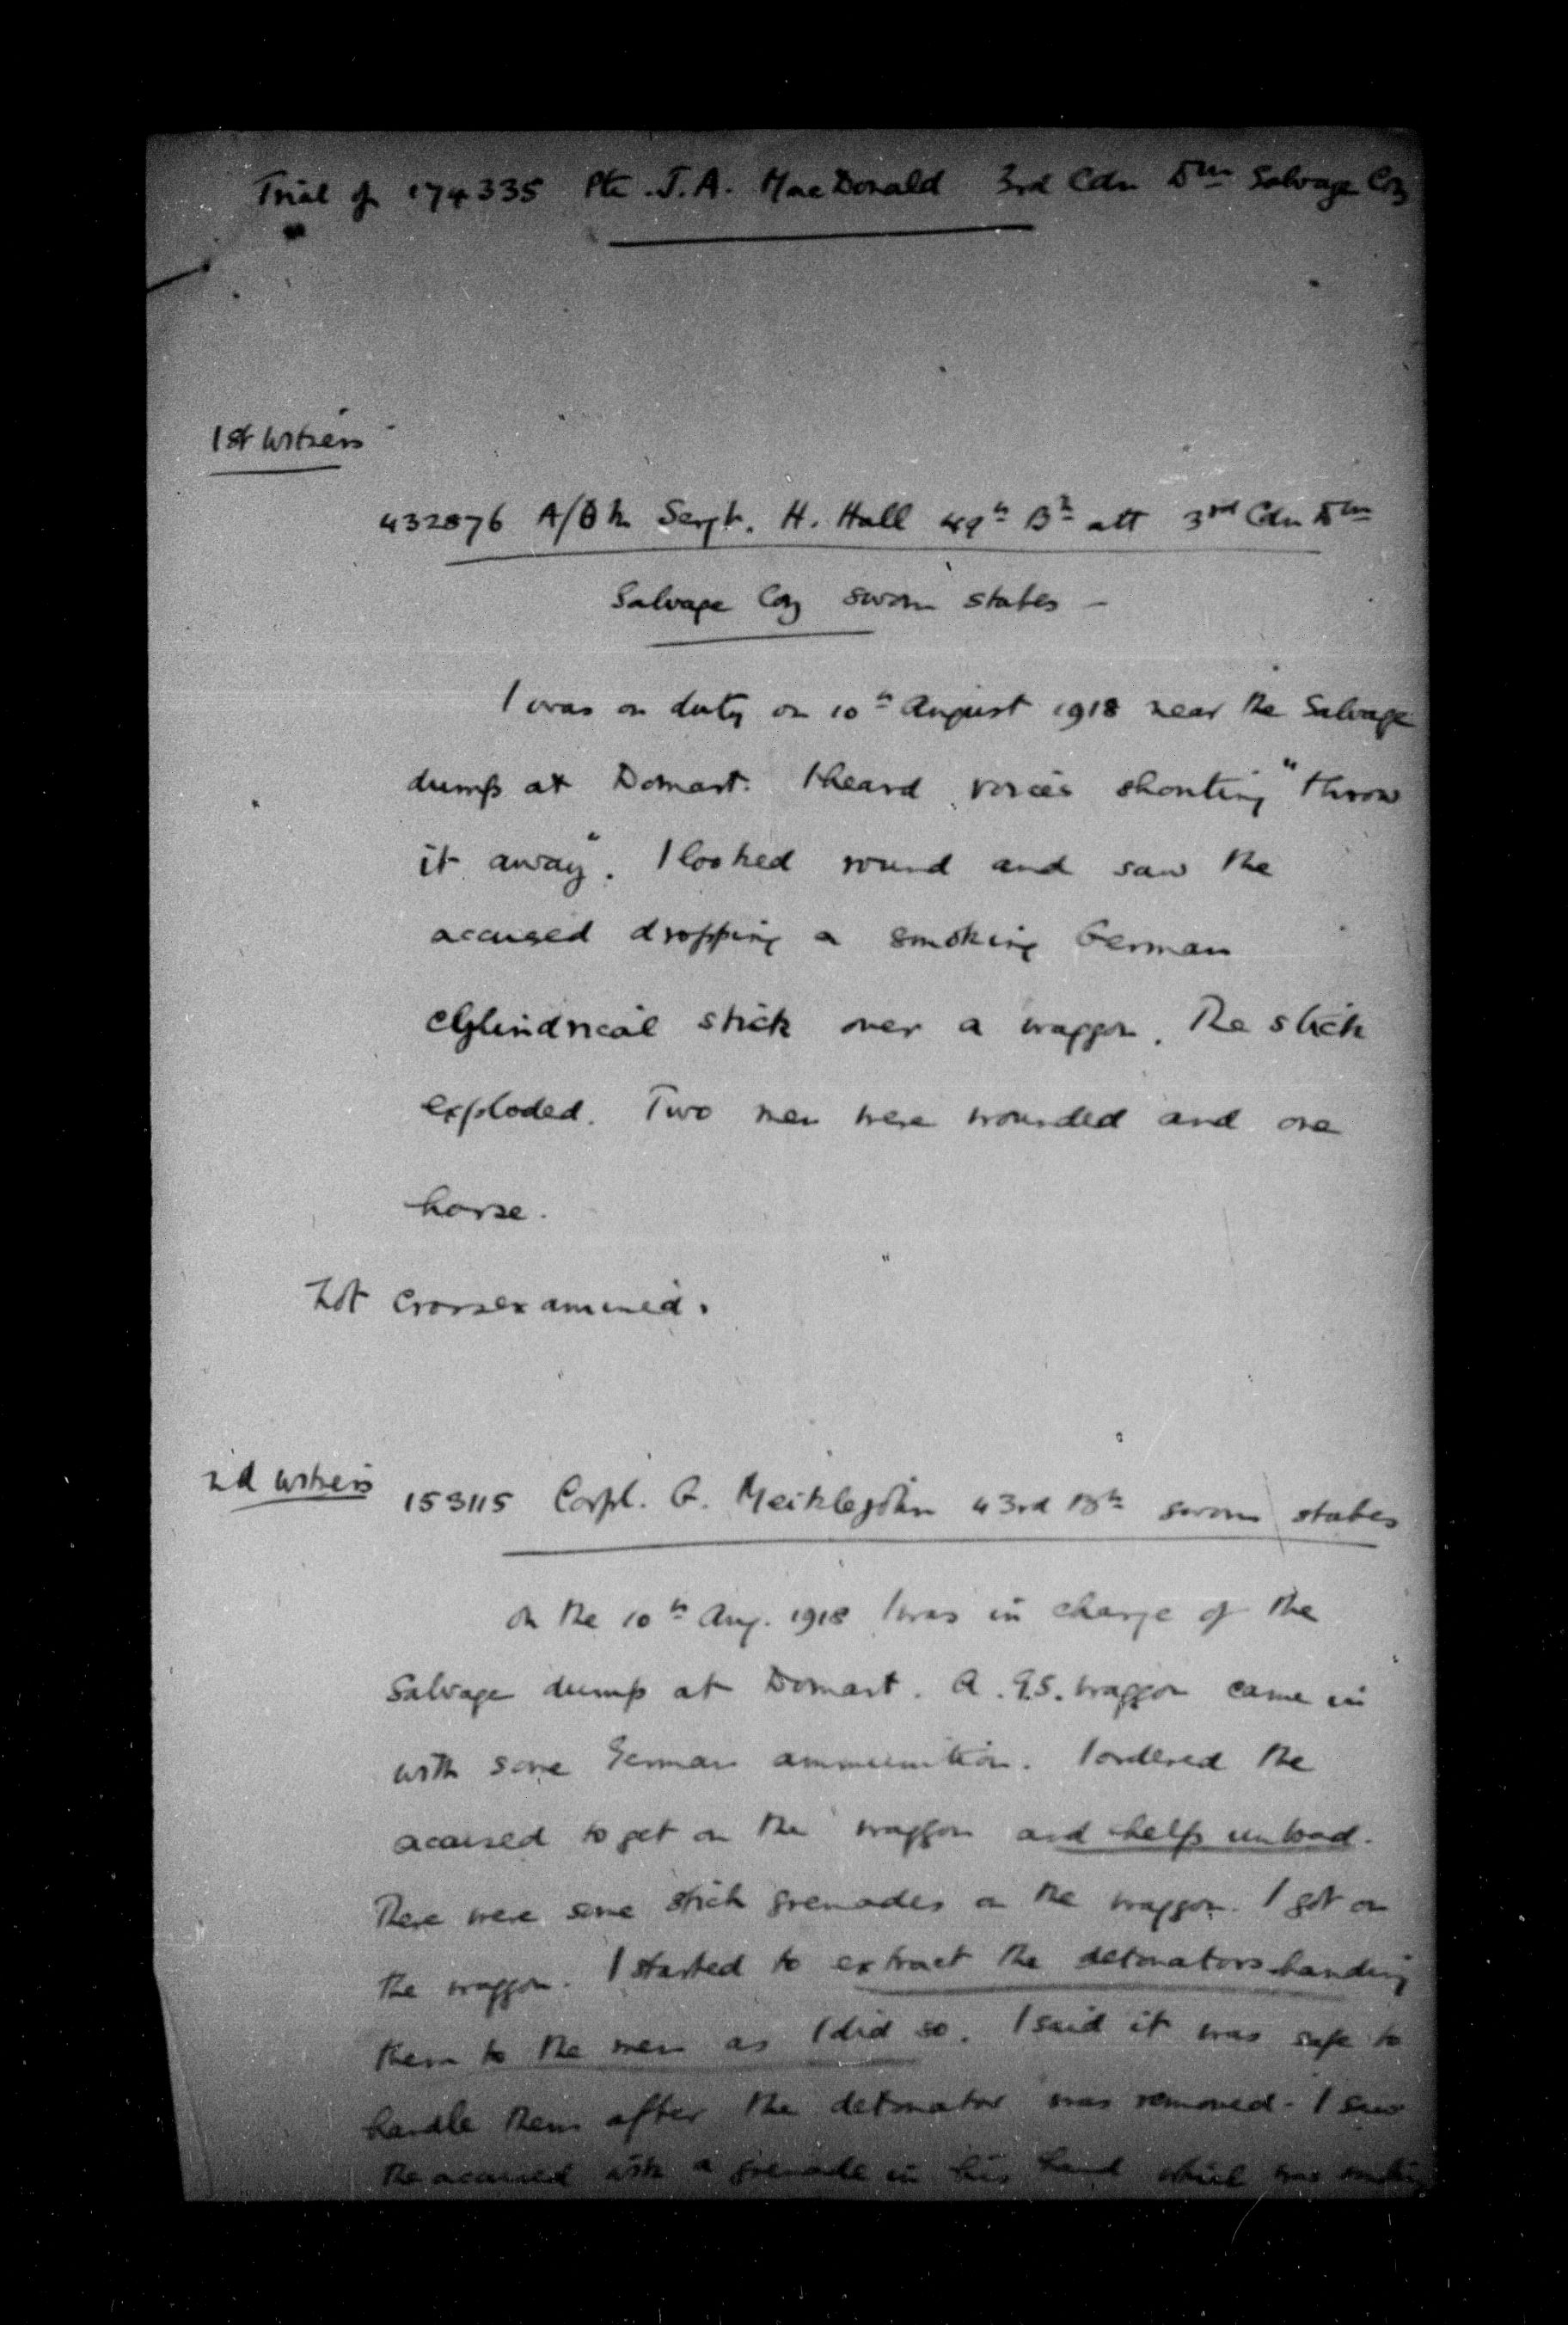 Trial of 174335 Pte. J.A. MacDonald 3rd Cdn Dn Salvage Coy
1st Witness
432876 A/ Sergt. H. Hall 49th Bn att 3rd Cdn Dn
Salvage Coy sworn states –
I was on duty on 10th August 1918 near the Salvage
dump at Domart. I heard voices shouting "throw
it away". I looked round and saw the
accused dropping a smoking German
cylindrical stick over a waggon. The stick
exploded. Two men were wounded and one
horse.
Not crossexamined.
2d Witness 153115 Corpl. G. Meiklejohn 43rd Bn sworn states
On the 10th Aug. 1918 I was in charge of the
Salvage dump at Domart. A G.S. waggon came in
with some German ammunition. I ordered the
accused to get on the waggon and help unload.
There were some stick grenades on the waggon. I got on
the waggon. I started to extract the detonators handing
them to the men as I did so. I said it was safe to
handle them after the detonator was removed. I saw
the accused with a grenade in his hand which was smoking